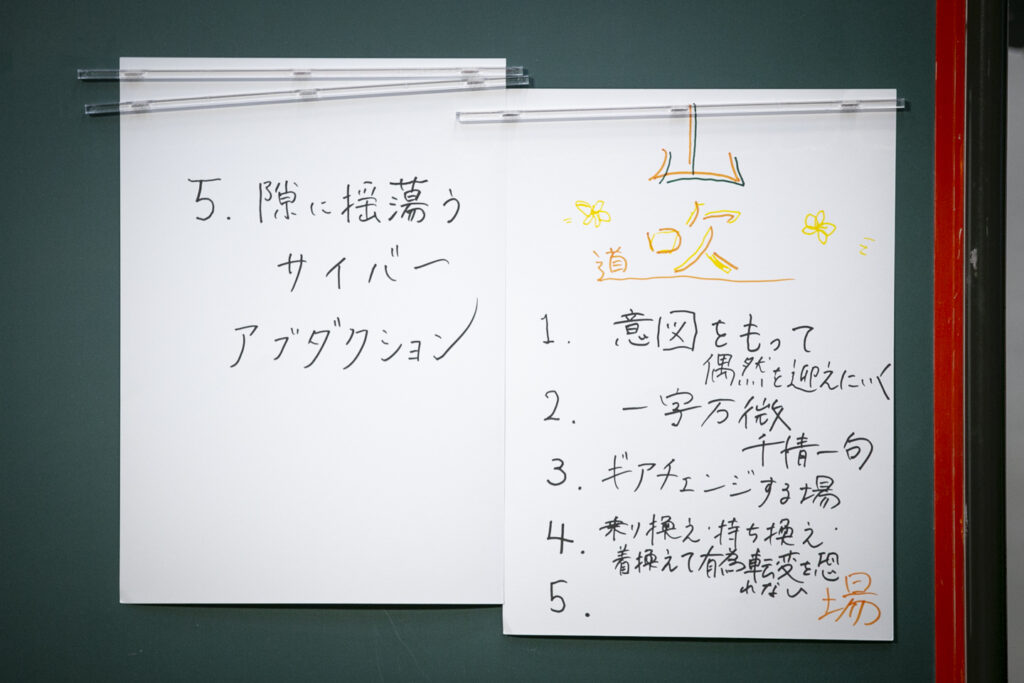 5. 隙に揺蕩う
サイバー
アブダクション
山
吹
道
1. 意図をもって
偶然を迎えにいく
2. 一字万微
千情一句
3. ギアチェンジする場
4. 乗り換え・持ち換え・
着換えて有為転変を恐
れない
5.
場